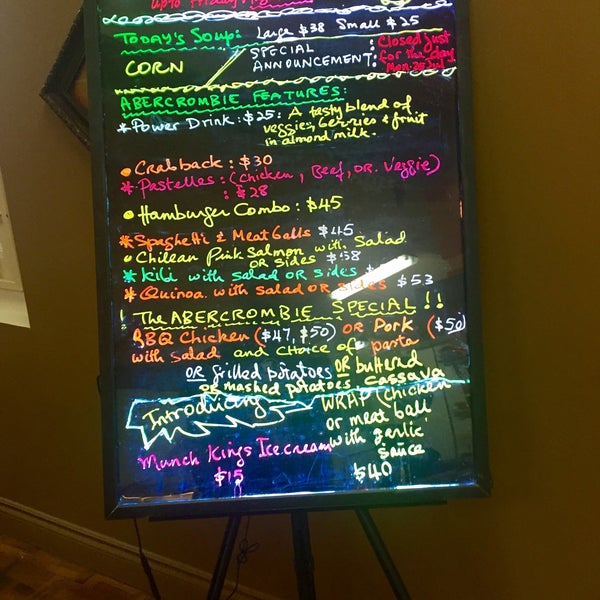 up to Friday
TODAY'S SOUP: Large $38 Small $25
CORN
SPECIAL ANNOUNCEMENT:
Closed just
for the day
Mon
ABERCROMBIE FEATURES:
*Power Drink: $25: A tasty blend of
veggies, berries & fruit
in almond milk.
• Crabback: $30
* Pastelles: (Chicken, Beef, OR Veggie)
: $28
• Hamburger Combo: $45
*Spaghetti & Meat Balls $45
• Chilean Pink Salmon with Salad
OR sides $58
* Kibi with salad OR sides $
* Quinoa with salad OR sides $53
! The ABERCROMBIE SPECIAL!!
BBQ Chicken ($47, $50) OR Pork ($50)
with Salad and choice of pasta
OR grilled potatoes OR buttered
OR mashed potatoes cassava
Introducing
WRAP (chicken
or meat ball
with garlic
sauce
$40
Munch Kings Ice cream
$15